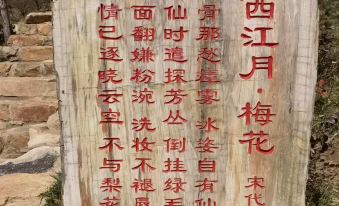 西江月·梅花
宋代
骨那愁瘴雾 冰姿自有仙
仙时遣探芳丛 倒挂绿毛
面翻嫌粉涴 洗妆不褪唇
情已逐晓云空 不与梨花